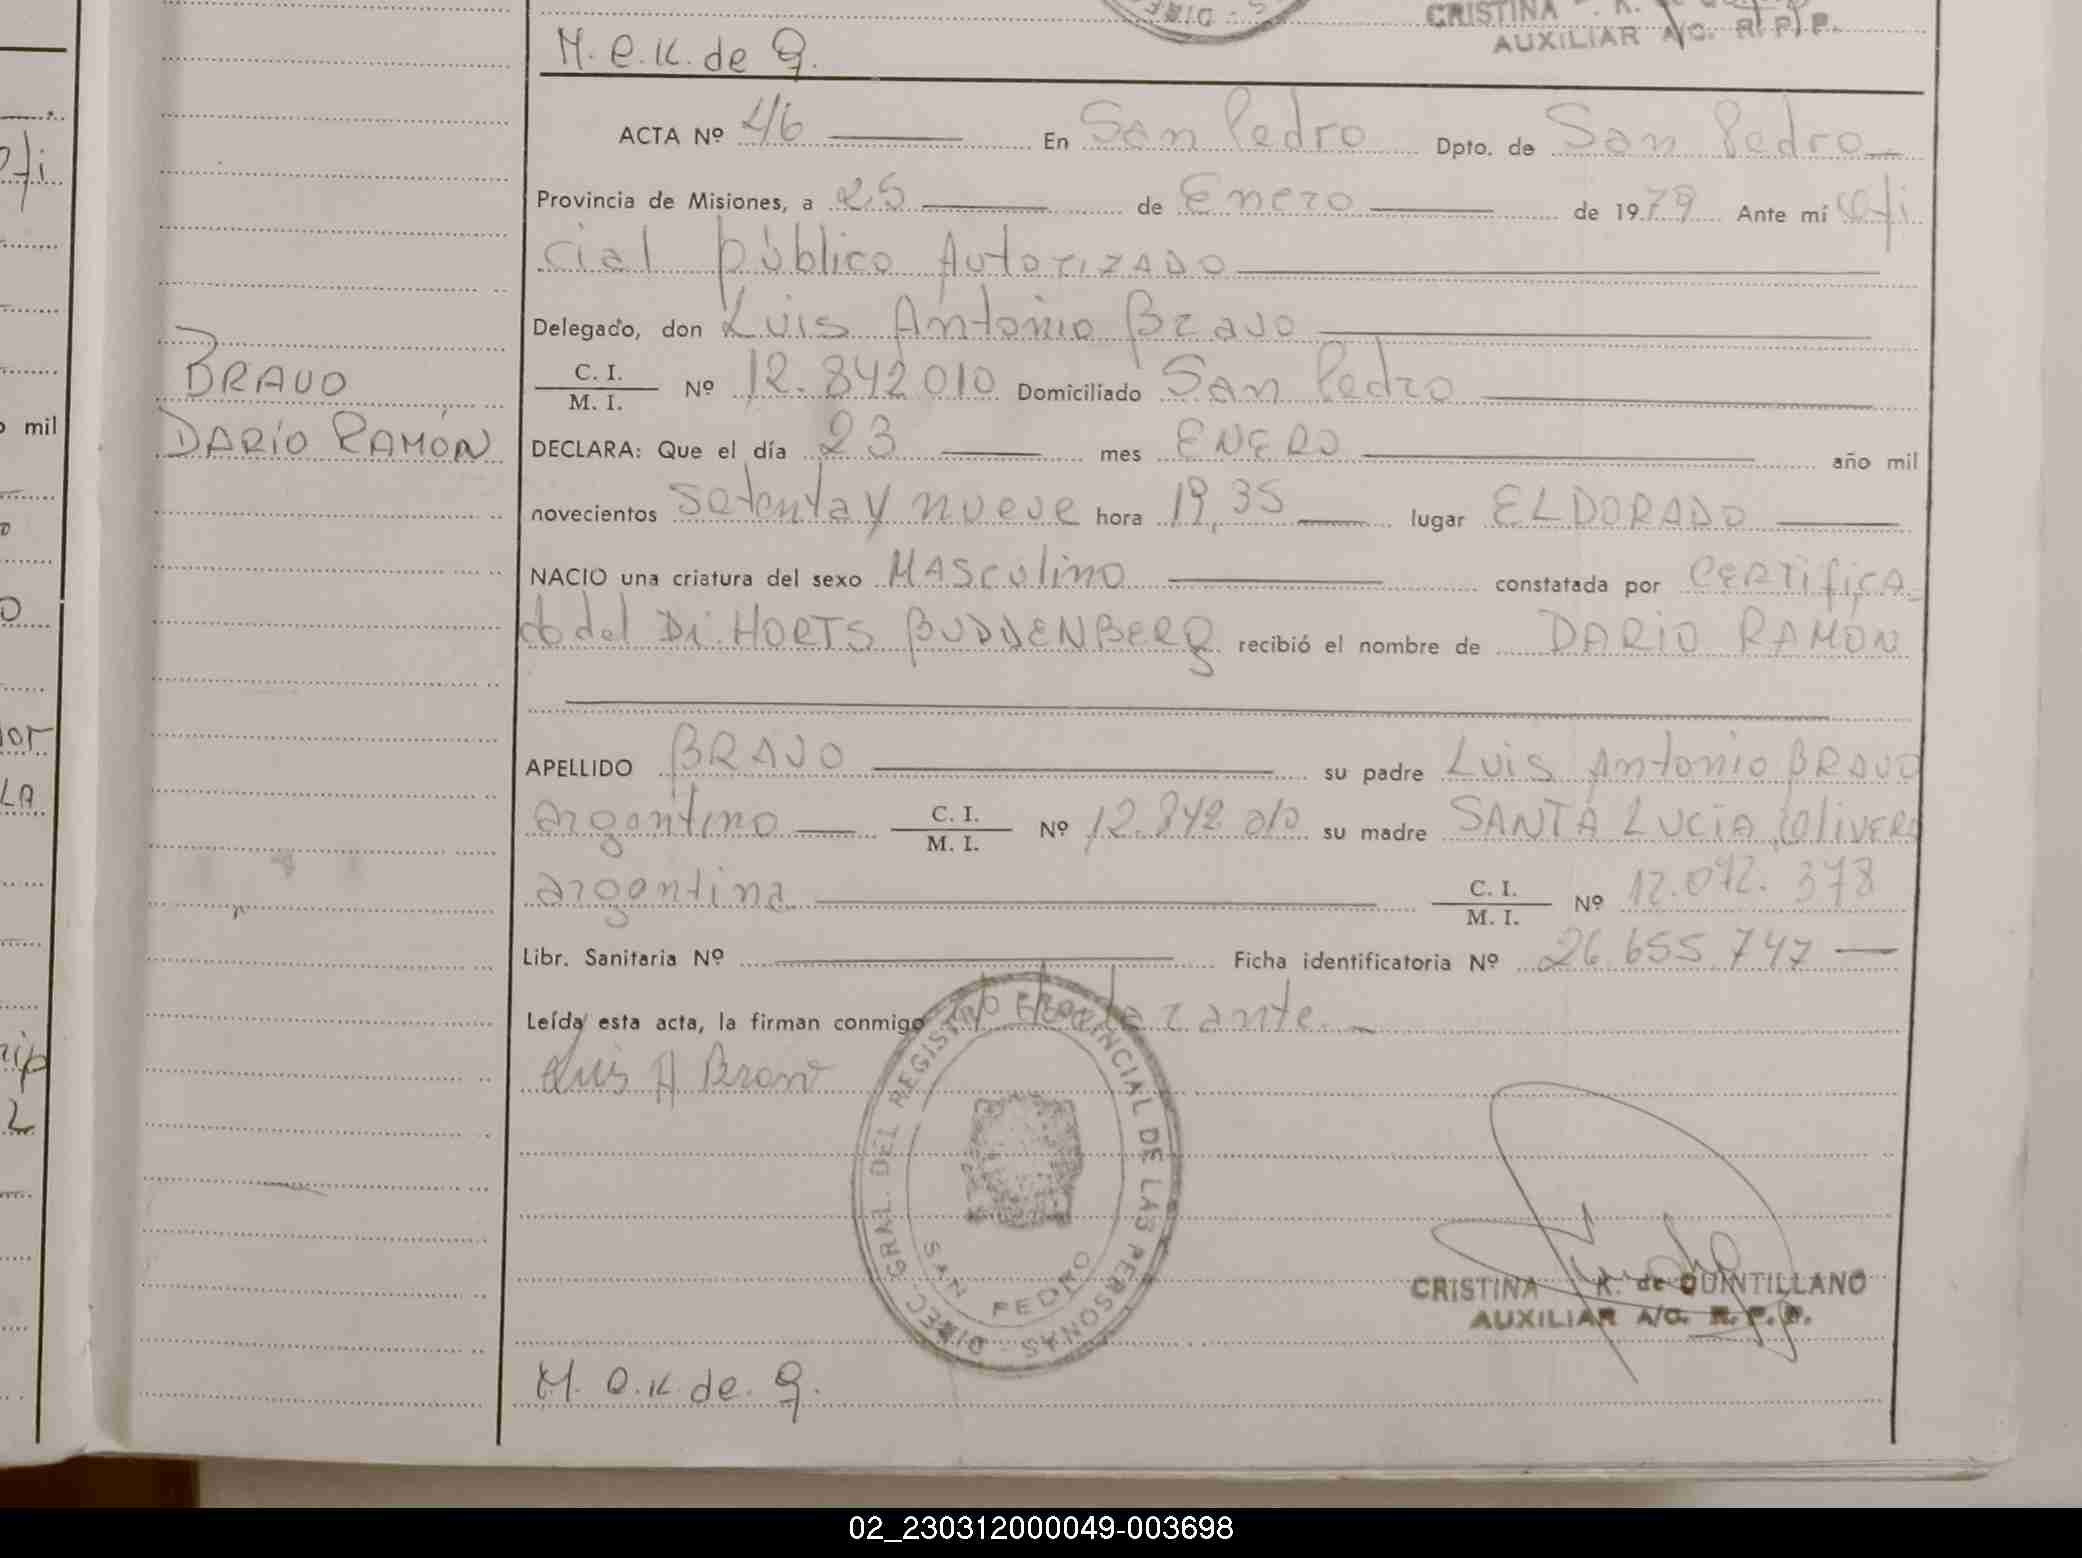 CRISTINA K. de
AUXILIAR A/C. R. P. P.
M. e. K. de Q.
ACTA Nº 46 En San Pedro Dpto. de San Pedro
Provincia de Misiones, a 25 de Enero de 1979 Ante mí ofi
cial público Autorizado
Delegado, don Luis Antonio Bravo
C. I.
M. I. Nº 12.842010 Domiciliado San Pedro
BRAVO
DARÍO RAMÓN
DECLARA: Que el día 23 mes ENERO año mil
novecientos setenta y nueve hora 19,35 lugar ELDORADO
NACIO una criatura del sexo MASculino constatada por CERTifica
do del Dr. HORTS BUDDENBERG recibió el nombre de DARÍO RAMÓN
APELLIDO BRAVO su padre Luis Antonio BRAVO
argentino C. I.
M. I. Nº 12.842 010 su madre SANTA LUCIA OliVERA
argentina C. I.
M. I. Nº 12.072.378
Libr. Sanitaria Nº Ficha identificatoria Nº 26.655.747
Leída esta acta, la firman conmigo el declarante.
Luis A Bravo
DIREC. GRAL. DEL REGISTRO PROVINCIAL DE LAS PERSONAS
SAN PEDRO
CRISTINA K. de QUINTILLANO
AUXILIAR A/C. R. P. P.
M. e. K. de. Q.
mil
02_230312000049-003698